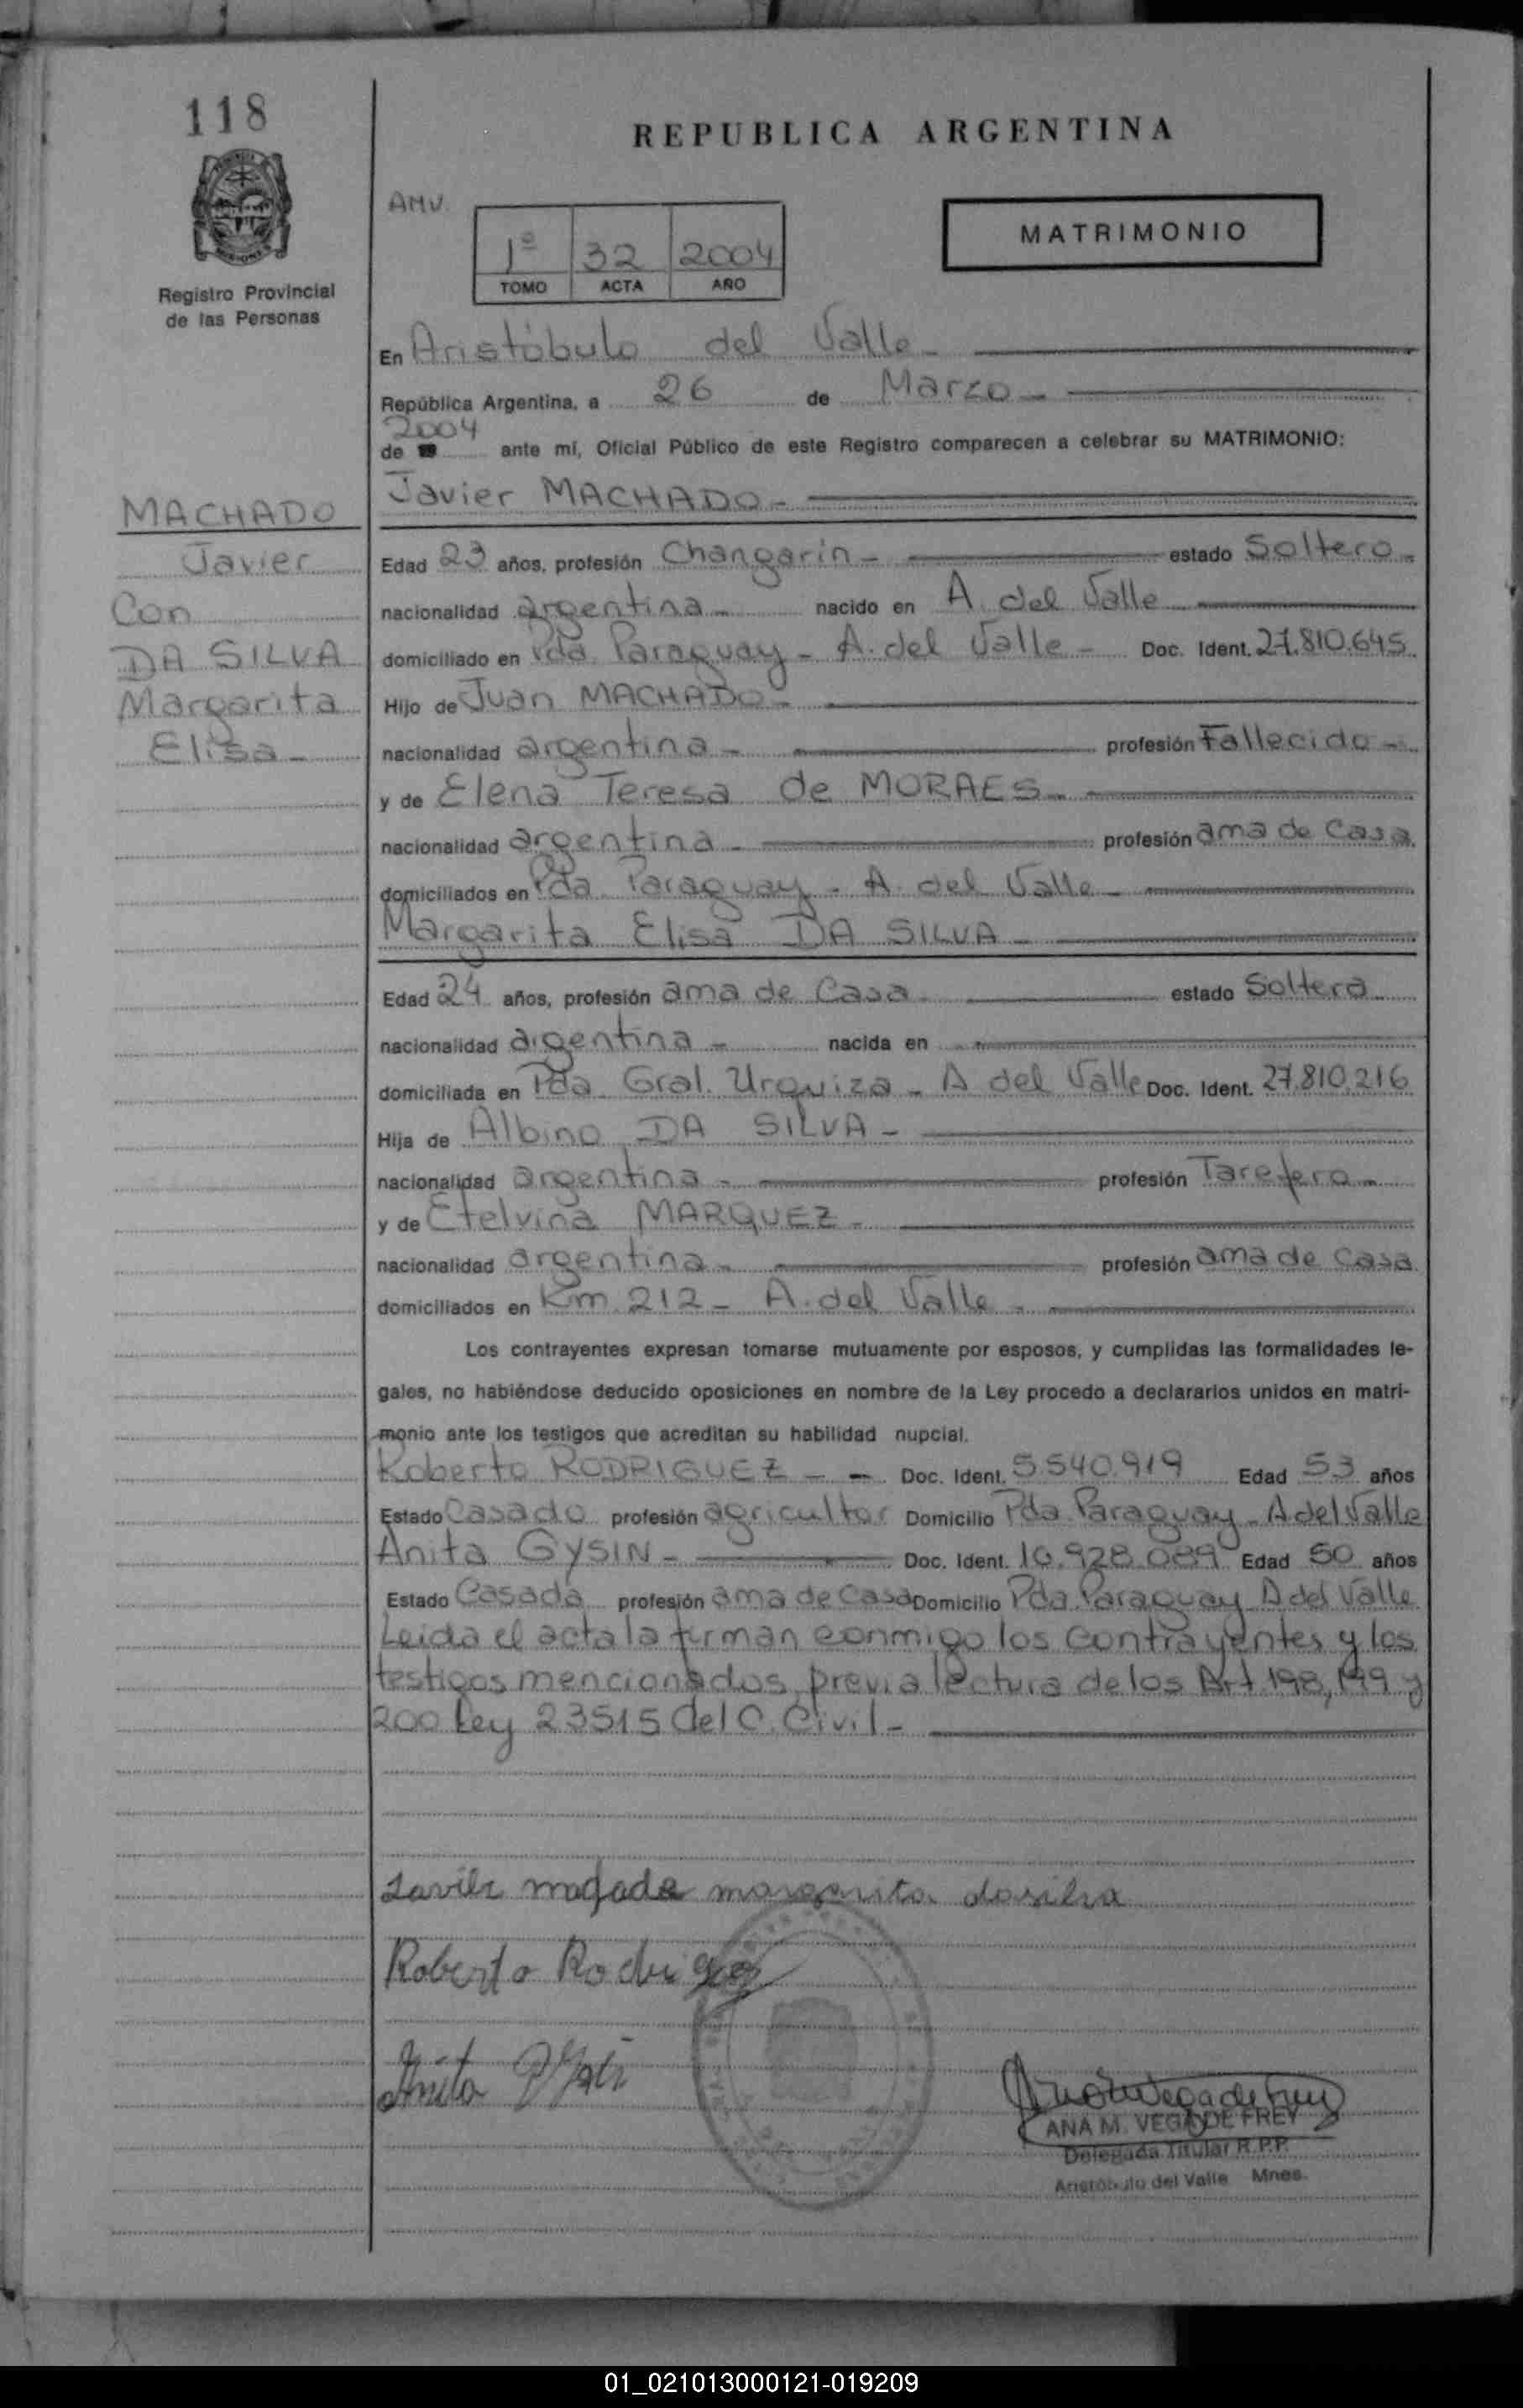 118
REPUBLICA ARGENTINA
AMV.
MATRIMONIO
1º 32 2004
TOMO ACTA AÑO
Registro Provincial
de las Personas
En Aristóbulo del Valle -
República Argentina, a 26 de Marzo -
2004
de 19 ante mí, Oficial Público de este Registro comparecen a celebrar su MATRIMONIO:
Javier MACHADO -
MACHADO
Javier
Con
DA SILVA
Margarita
Elisa -
Edad 23 años, profesión Changarin - estado Soltero -
nacionalidad argentina - nacido en A. del Valle
domiciliado en Pda. Paraguay - A. del Valle - Doc. Ident. 27.810.645
Hijo de Juan MACHADO -
nacionalidad argentina - profesión Fallecido -
y de Elena Teresa de MORAES -
nacionalidad argentina - profesión ama de casa
domiciliados en Pda Paraguay - A. del Valle -
Margarita Elisa DA SILVA -
Edad 24 años, profesión ama de Casa - estado Soltera
nacionalidad argentina - nacida en
domiciliada en Pda. Gral. Urquiza - A del Valle Doc. Ident. 27.810.216
Hija de Albino DA SILVA -
nacionalidad argentina - profesión Tarefero -
y de Etelvina MARQUEZ -
nacionalidad argentina - profesión ama de casa
domiciliados en Km 212 - A. del Valle -
Los contrayentes expresan tomarse mutuamente por esposos, y cumplidas las formalidades le-
gales, no habiéndose deducido oposiciones en nombre de la Ley procedo a declararlos unidos en matri-
monio ante los testigos que acreditan su habilidad nupcial.
Roberto RODRIGUEZ - - Doc. Ident. 5.540.919 Edad 53 años
Estado Casado profesión agricultor Domicilio Pda. Paraguay - A del Valle
Anita GYSIN - Doc. Ident. 10.928.089 Edad 50 años
Estado Casada profesión ama de casa Domicilio Pda. Paraguay A del Valle
Leida el acta la firman conmigo los contrayentes y los
testigos mencionados, previa lectura de los Art. 198, 199 y
200 Ley 23515 del C. Civil -
margarita dasilva
Roberto Rodriguez
Anita
ANA M. VEGA DE FREY
Delegada Titular R.P.P.
Aristóbulo del Valle Mnes.
01_021013000121-019209